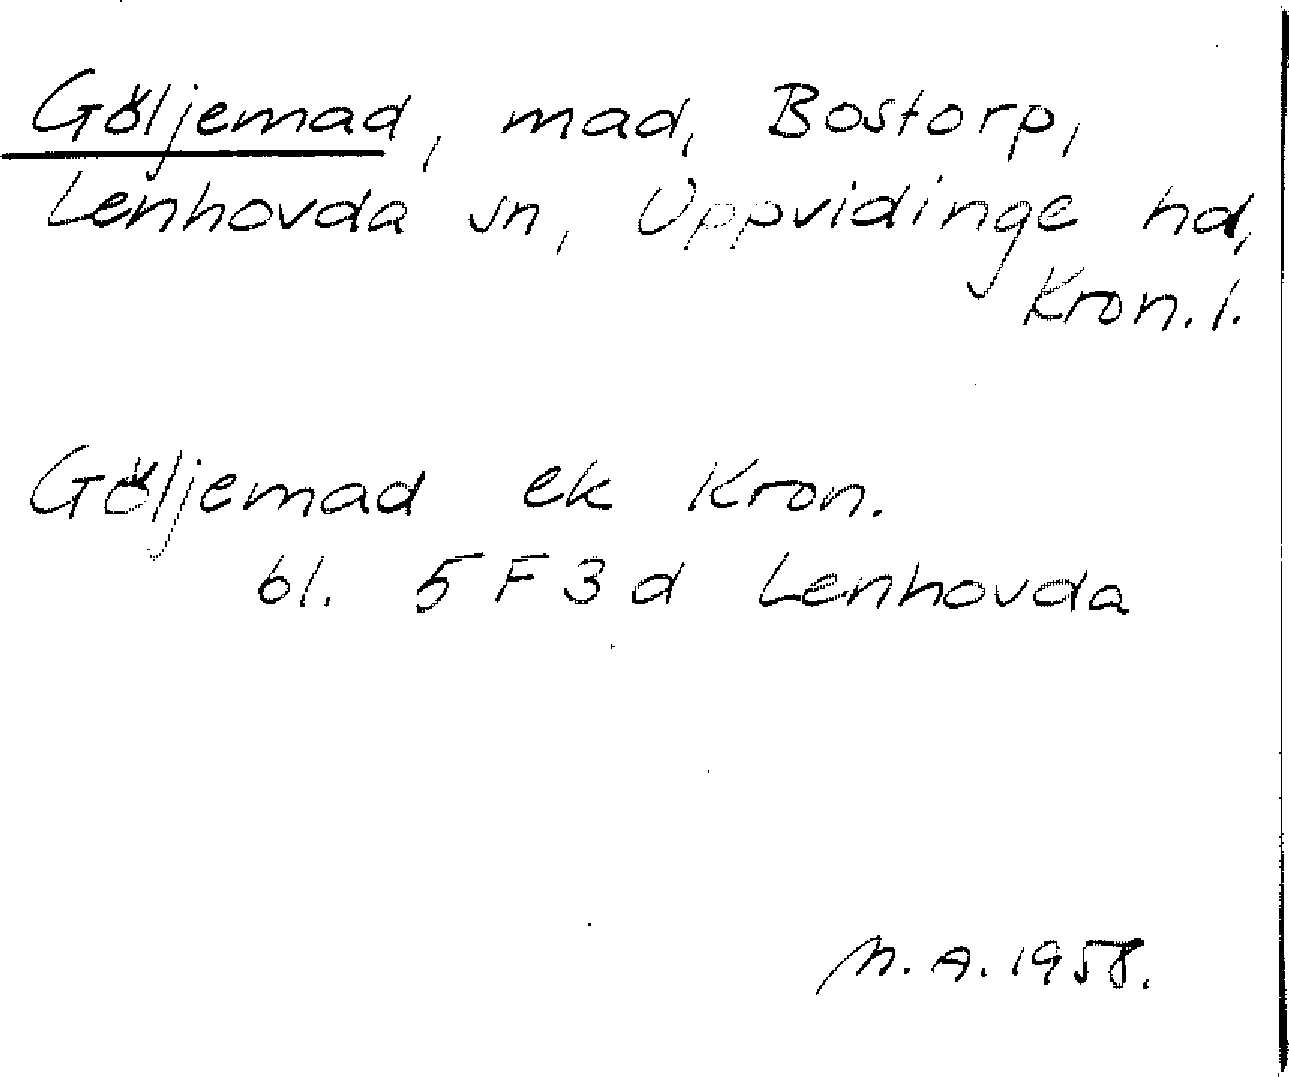 Göljemad, mad, Bostorp,
Lenhovda sn, Uppvidinge hd,
Kron. l.
Göljemad ek Kron.
bl. 5 F 3 d Lenhovda
M. A. 1958.